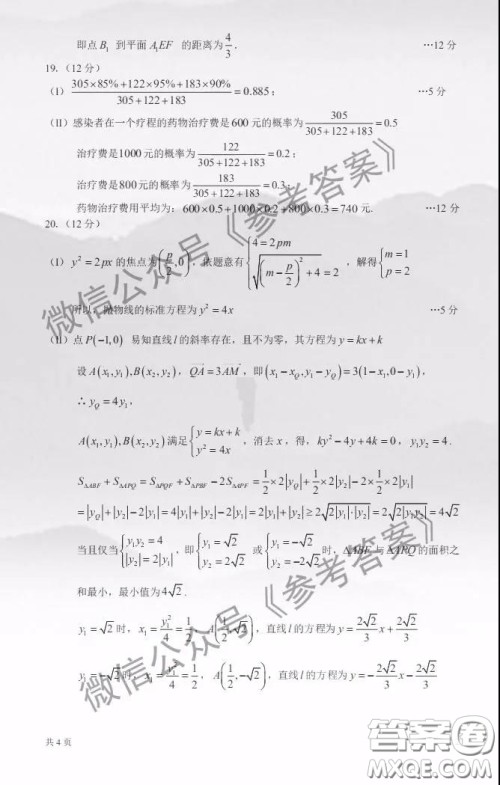 即点 B₁ 到平面 A₁EF 的距离为 4/3 . …12 分
19. （12 分）
（I） (305×85%+122×95%+183×90%)/(305+122+183) = 0.885 ; …5 分
（II）感染者在一个疗程的药物治疗费是 600 元的概率为 305/(305+122+183) = 0.5
治疗费是 1000 元的概率为 122/(305+122+183) = 0.2 ;
治疗费是 800 元的概率为 183/(305+122+183) = 0.3 ;
药物治疗费用平均为: 600×0.5+1000×0.2+800×0.3=740 元. …12 分
20. （12 分）
（I） y²=2px 的焦点为 (p/2, 0) , 依题意有 {4=2pm, √((m−p/2)²+4)=2 , 解得 {m=1, p=2
所以, 抛物线的标准方程为 y²=4x …5 分
（II）点 P(−1,0) 易知直线 l 的斜率存在，且不为零，其方程为 y=kx+k
设 A(x₁,y₁),B(x₂,y₂) , QA=3AM , 即 (x₁−x_Q,y₁−y_Q)=3(1−x₁,0−y₁) ,
∴ y_Q=4y₁,
A(x₁,y₁),B(x₂,y₂) 满足 {y=kx+k, y²=4x , 消去 x , 得, ky²−4y+4k=0 , y₁y₂=4 .
S△ABF+S△APQ=S△PQF+S△PBF−2S△APF=1/2×2|y_Q|+1/2×2|y₂|−2×1/2×2|y₁|
=|y_Q|+|y₂|−2|y₁|=4|y₁|+|y₂|−2|y₁|=2|y₁|+|y₂|≥2√(2|y₁|·|y₂|)=2√(2|y₁y₂|)=4√2
当且仅当 {y₁y₂=4, |y₂|=2|y₁| , 即 {y₁=√2, y₂=2√2 或 {y₁=−√2, y₂=−2√2 时, △ABF 与 △APQ 的面积之
和最小，最小值为 4√2 .
y₁=√2 时, x₁=y₁²/4=1/2 , A(1/2,√2) , 直线 l 的方程为 y=(2√2/3)x+2√2/3
y₁=−√2 时, x₁=y₁²/4=1/2 , A(1/2,−√2) , 直线 l 的方程为 y=−(2√2/3)x−2√2/3
共 4 页
微信公众号《参考答案》
微信公众号《参考答案》
答案圈
MXQE.COM